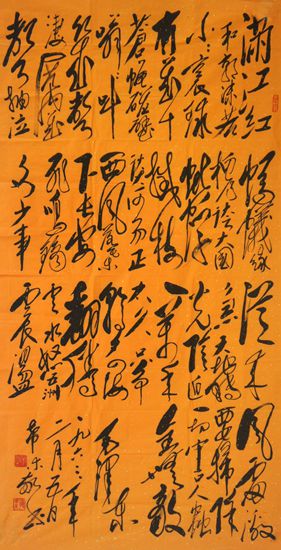 满江红
和郭沫若
小小寰球
有几个
苍蝇碰壁
嗡嗡叫
几声
凄厉几
声抽泣
蚂蚁缘
槐夸大国
蚍蜉
撼树
谈何易正
西风落叶
下长安
飞鸣镝
多少事
从来
急天地转
光阴迫
一万年
太久只争
朝夕四海
翻腾
云水怒五洲
震荡
风雷激
要扫除
一切害人虫
全无敌
毛泽东
一九六三年